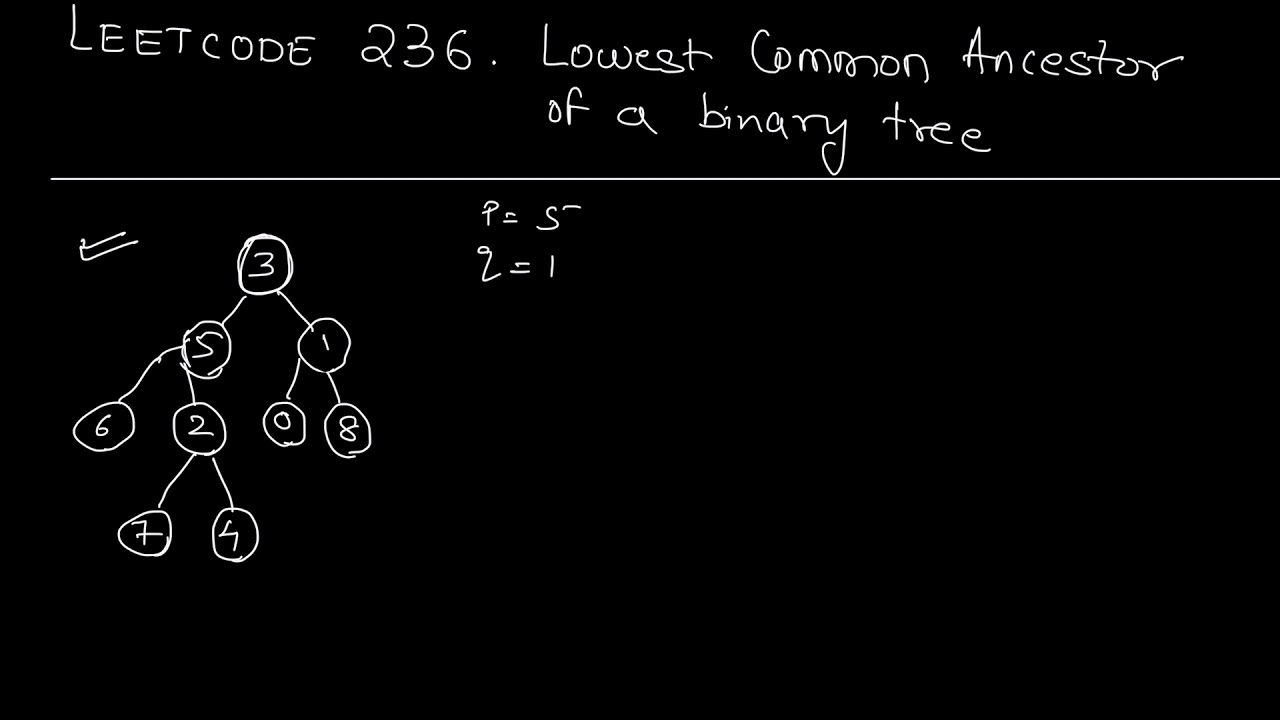 LEETCODE 236. Lowest Common Ancestor
of a binary tree
P = 5
q = 1
3
5 1
6 2 0 8
7 4